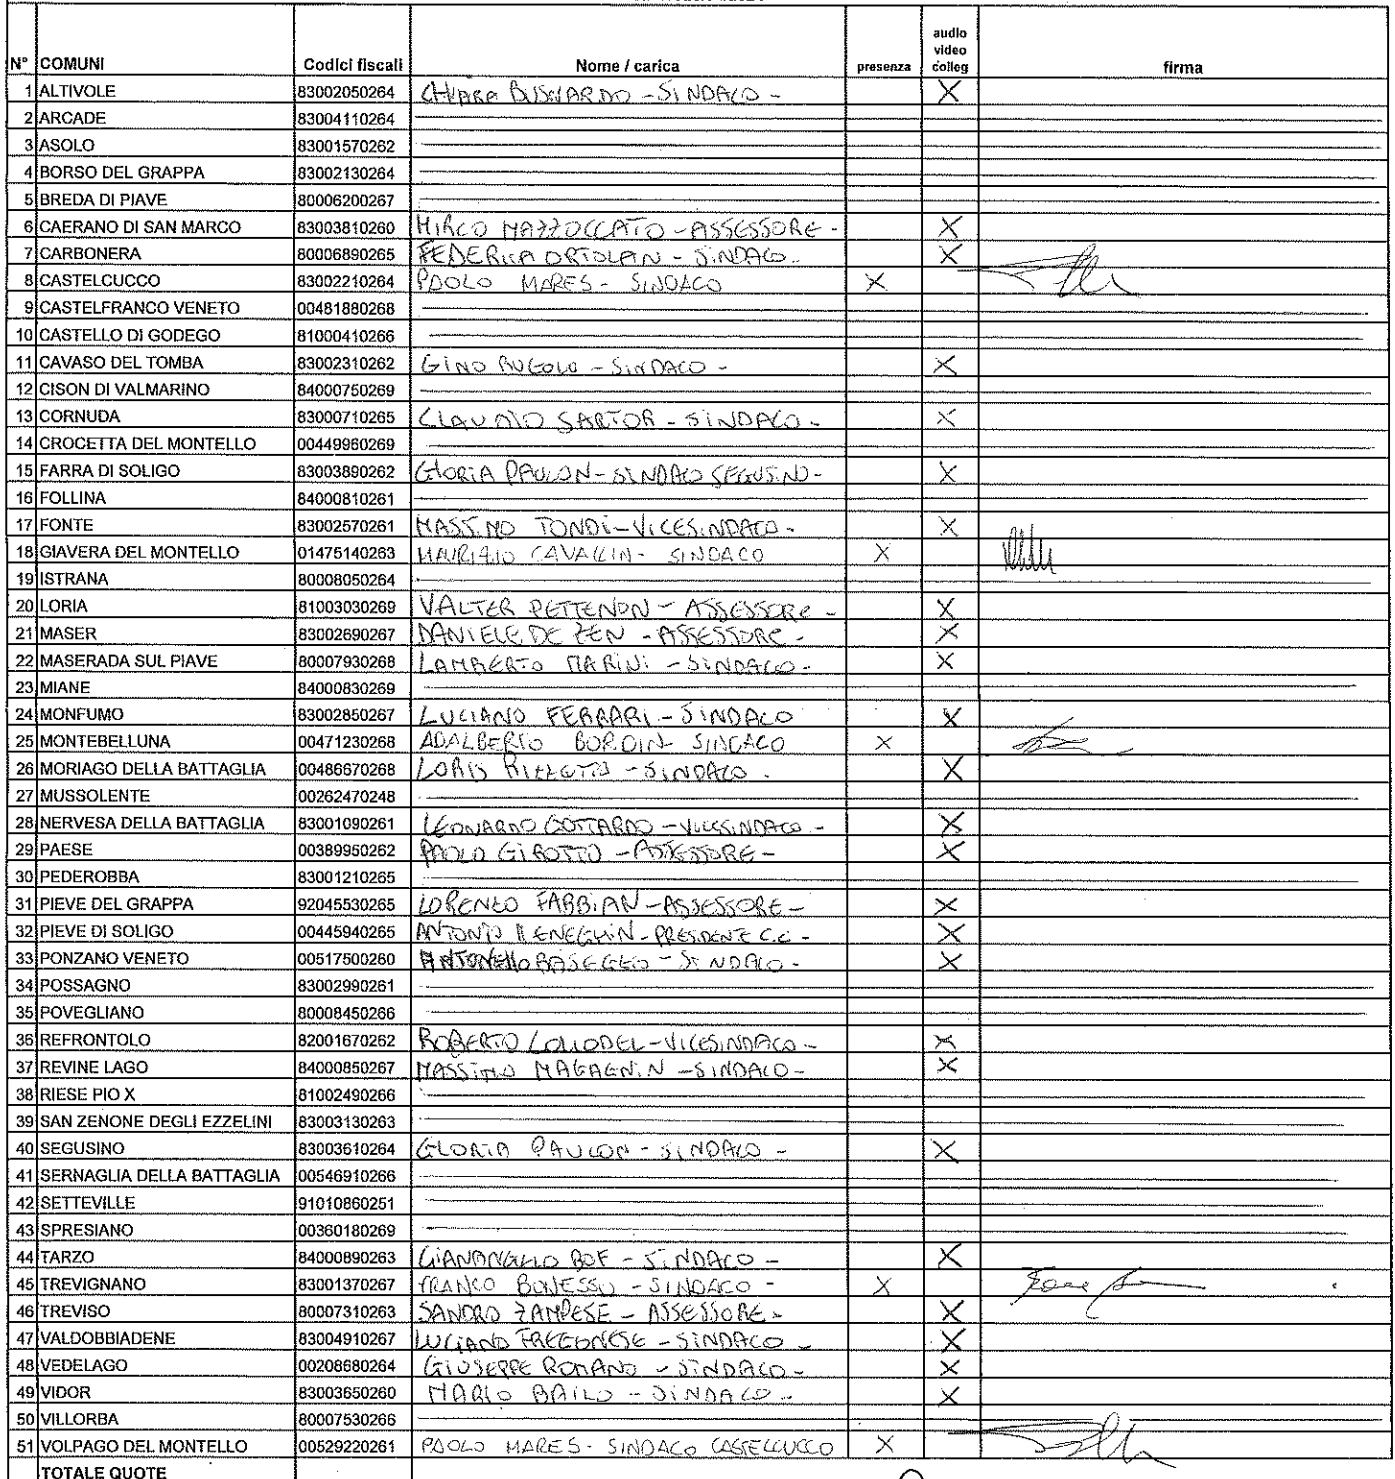 N° COMUNI Codici fiscali Nome / carica presenza audio video colleg firma
1 ALTIVOLE 83002050264 CHIARA BUSNARDO - SINDACO - X
2 ARCADE 83004110264
3 ASOLO 83001570262
4 BORSO DEL GRAPPA 83002130264
5 BREDA DI PIAVE 80006200267
6 CAERANO DI SAN MARCO 83003810260 MIRCO MAZZOCCATO - ASSESSORE - X
7 CARBONERA 80006890265 FEDERICA ORTOLAN - SINDACO - X
8 CASTELCUCCO 83002210264 PAOLO MARES - SINDACO X
9 CASTELFRANCO VENETO 00481880268
10 CASTELLO DI GODEGO 81000410266
11 CAVASO DEL TOMBA 83002310262 GINO RUGOLO - SINDACO - X
12 CISON DI VALMARINO 84000750269
13 CORNUDA 83000710265 CLAUDIO SARTOR - SINDACO - X
14 CROCETTA DEL MONTELLO 00449960269
15 FARRA DI SOLIGO 83003890262 GLORIA PAULON - SINDACO SEGUSINO - X
16 FOLLINA 84000810261
17 FONTE 83002570261 MASSIMO TONDI - VICESINDACO - X
18 GIAVERA DEL MONTELLO 01475140263 MAURIZIO CAVALLIN - SINDACO X
19 ISTRANA 80008050264
20 LORIA 81003030269 VALTER PETTENON - ASSESSORE - X
21 MASER 83002690267 DANIELE DE ZEN - ASSESSORE - X
22 MASERADA SUL PIAVE 80007930268 LAMBERTO MARINI - SINDACO - X
23 MIANE 84000830269
24 MONFUMO 83002850267 LUCIANO FERRARI - SINDACO X
25 MONTEBELLUNA 00471230268 ADALBERTO BORDIN - SINDACO X
26 MORIAGO DELLA BATTAGLIA 00486670268 LORIS RIZZETTO - SINDACO . X
27 MUSSOLENTE 00262470248
28 NERVESA DELLA BATTAGLIA 83001090261 LEONARDO GOTTARDO - VICESINDACO - X
29 PAESE 00389950262 PAOLO GIROTTO - ASSESSORE - X
30 PEDEROBBA 83001210265
31 PIEVE DEL GRAPPA 92045530265 LORENZO FABBIAN - ASSESSORE - X
32 PIEVE DI SOLIGO 00445940265 ANTONIO MENEGHIN - PRESIDENTE C.C. - X
33 PONZANO VENETO 00517500260 ANTONELLO BASEGGIO - SINDACO - X
34 POSSAGNO 83002990261
35 POVEGLIANO 80008450266
36 REFRONTOLO 82001670262 ROBERTO COLLODEL - VICESINDACO - X
37 REVINE LAGO 84000850267 MASSIMO MAGAGNIN - SINDACO - X
38 RIESE PIO X 81002490266
39 SAN ZENONE DEGLI EZZELINI 83003130263
40 SEGUSINO 83003610264 GLORIA PAULON - SINDACO - X
41 SERNAGLIA DELLA BATTAGLIA 00546910266
42 SETTEVILLE 91010860251
43 SPRESIANO 00360180269
44 TARZO 84000890263 GIANANGELO BOF - SINDACO - X
45 TREVIGNANO 83001370267 FRANCO BONESSO - SINDACO - X
46 TREVISO 80007310263 SANDRO ZAMPESE - ASSESSORE - X
47 VALDOBBIADENE 83004910267 LUCIANO FREGONESE - SINDACO - X
48 VEDELAGO 00208680264 GIUSEPPE ROMANO - SINDACO - X
49 VIDOR 83003650260 MARIO BAILO - SINDACO - X
50 VILLORBA 80007530266
51 VOLPAGO DEL MONTELLO 00529220261 PAOLO MARES - SINDACO CASTELCUCCO X
TOTALE QUOTE